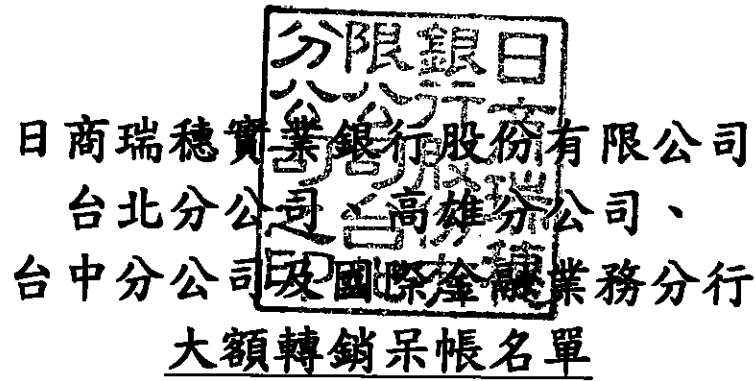 日商瑞穗實業銀行股份有限公司
台北分公司、高雄分公司、
台中分公司及國際金融業務分行
大額轉銷呆帳名單